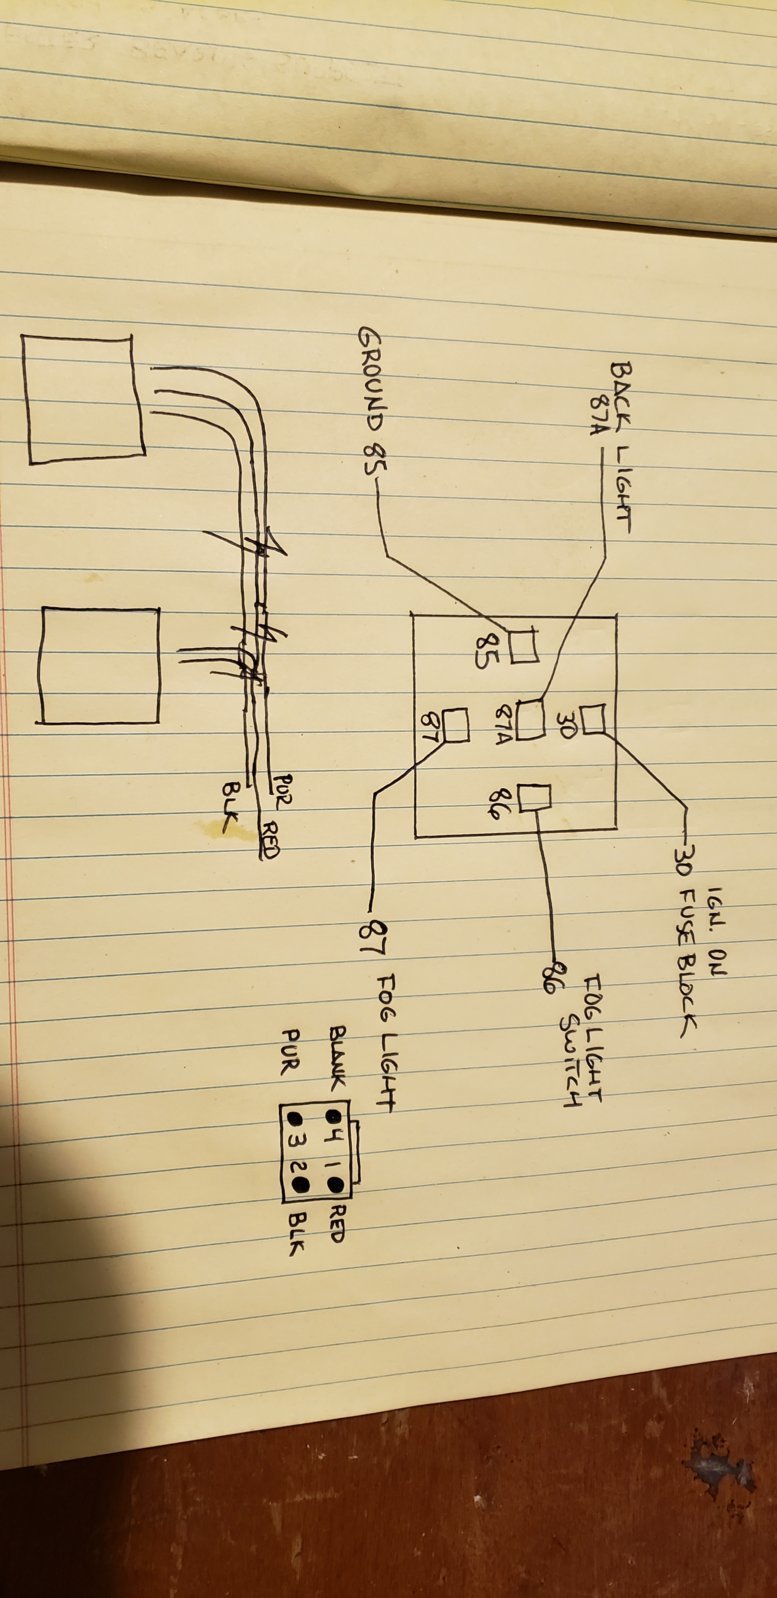 IGN. ON
30 FUSE BLOCK
BACK LIGHT
87A
FOG LIGHT
SWITCH
86
30
87A
85
86
87
GROUND 85
87 FOG LIGHT
BLANK 4 1 RED
PUR 3 2 BLK
PUR
RED
BLK